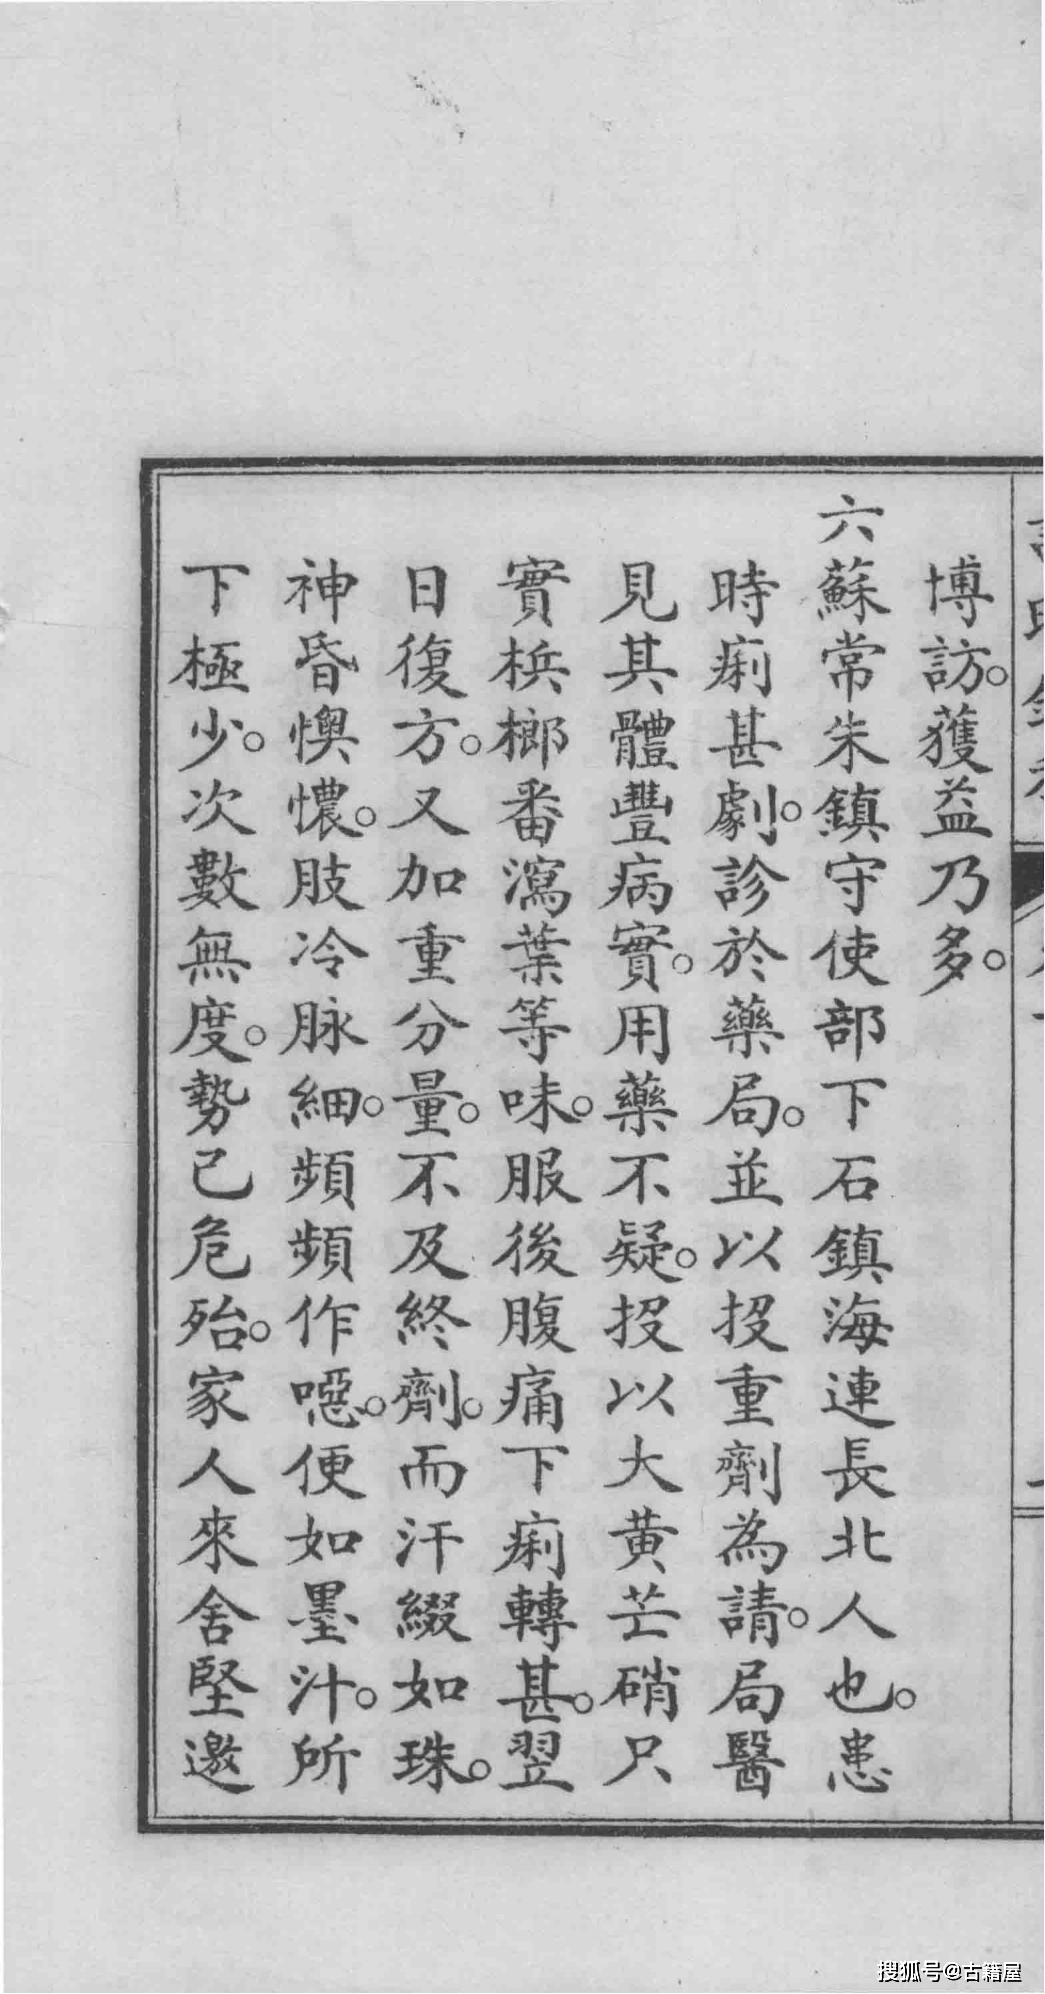 博訪。獲益乃多。
六蘇常朱鎮守使部下石鎮海連長北人也。患
時痢甚劇。診於藥局。並以投重劑為請。局醫
見其體豐病實。用藥不疑。投以大黄芒硝只
實梹榔番瀉葉等味。服後腹痛下痢轉甚。翌
日復方。又加重分量。不及終劑。而汗綴如珠。
神昏懊憹。肢冷脉細。頻頻作噁。便如墨汁。所
下極少。次數無度。勢已危殆。家人來舍堅邀
搜狐号@古籍屋